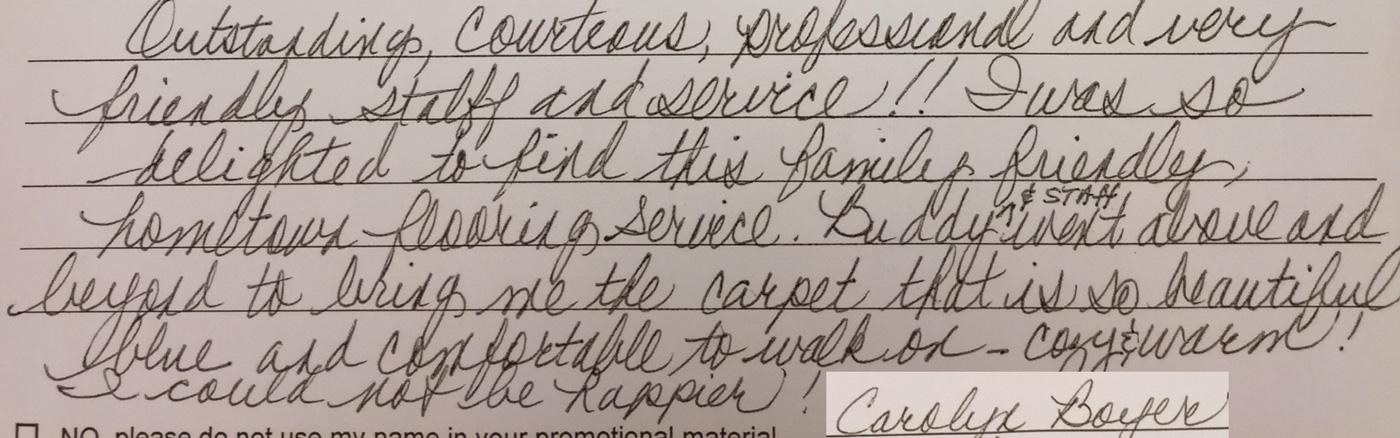 Outstanding, Courteous, professional and very
friendly staff and service!! I was so
delighted to find this family friendly,
hometown flooring service. Buddy ^ & STAFF went above and
beyond to bring me the carpet that is so beautiful
blue and comfortable to walk on - cozy & warm!
I could not be happier!
Carolyn Boyer
NO, please do not use my name in your promotional material